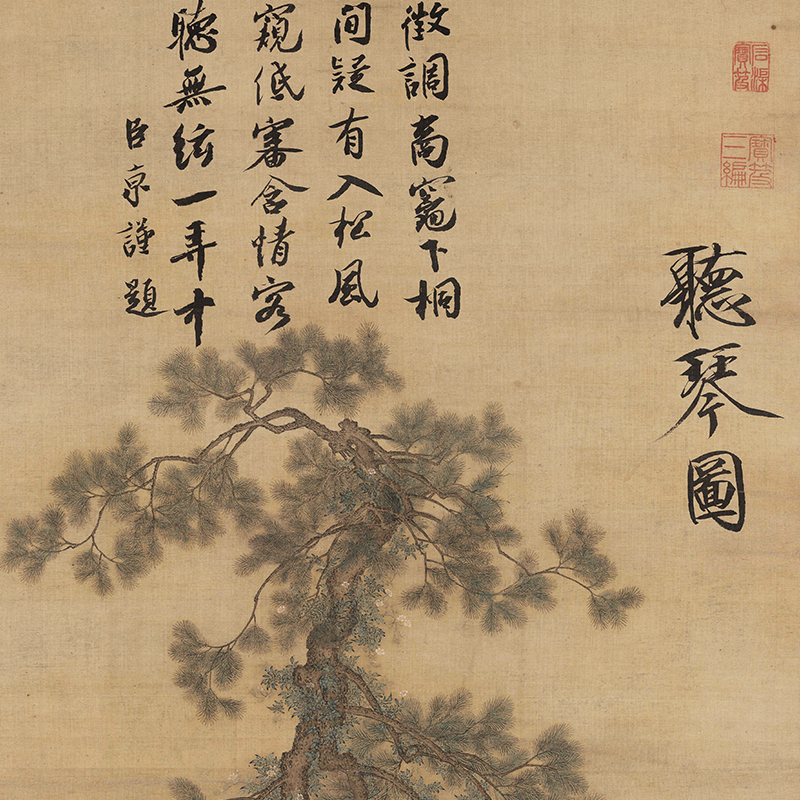 石渠寶笈
寶笈三編
聽琴圖
徵調商竈下桐
間疑有入松風
窺低審含情客
聽無絃一弄中
臣京謹題